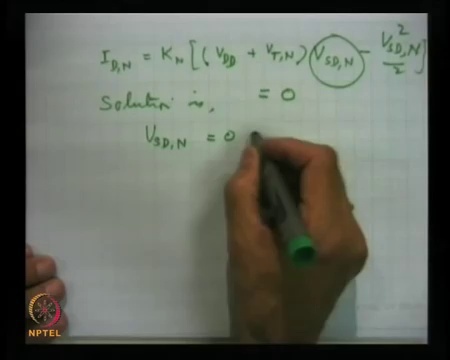 I_{D,N} = K_N [(V_{DD} + V_{T,N}) V_{SD,N} - \frac{V_{SD,N}^2}{2}]
Solution is, = 0
V_{SD,N} = 0
NPTEL